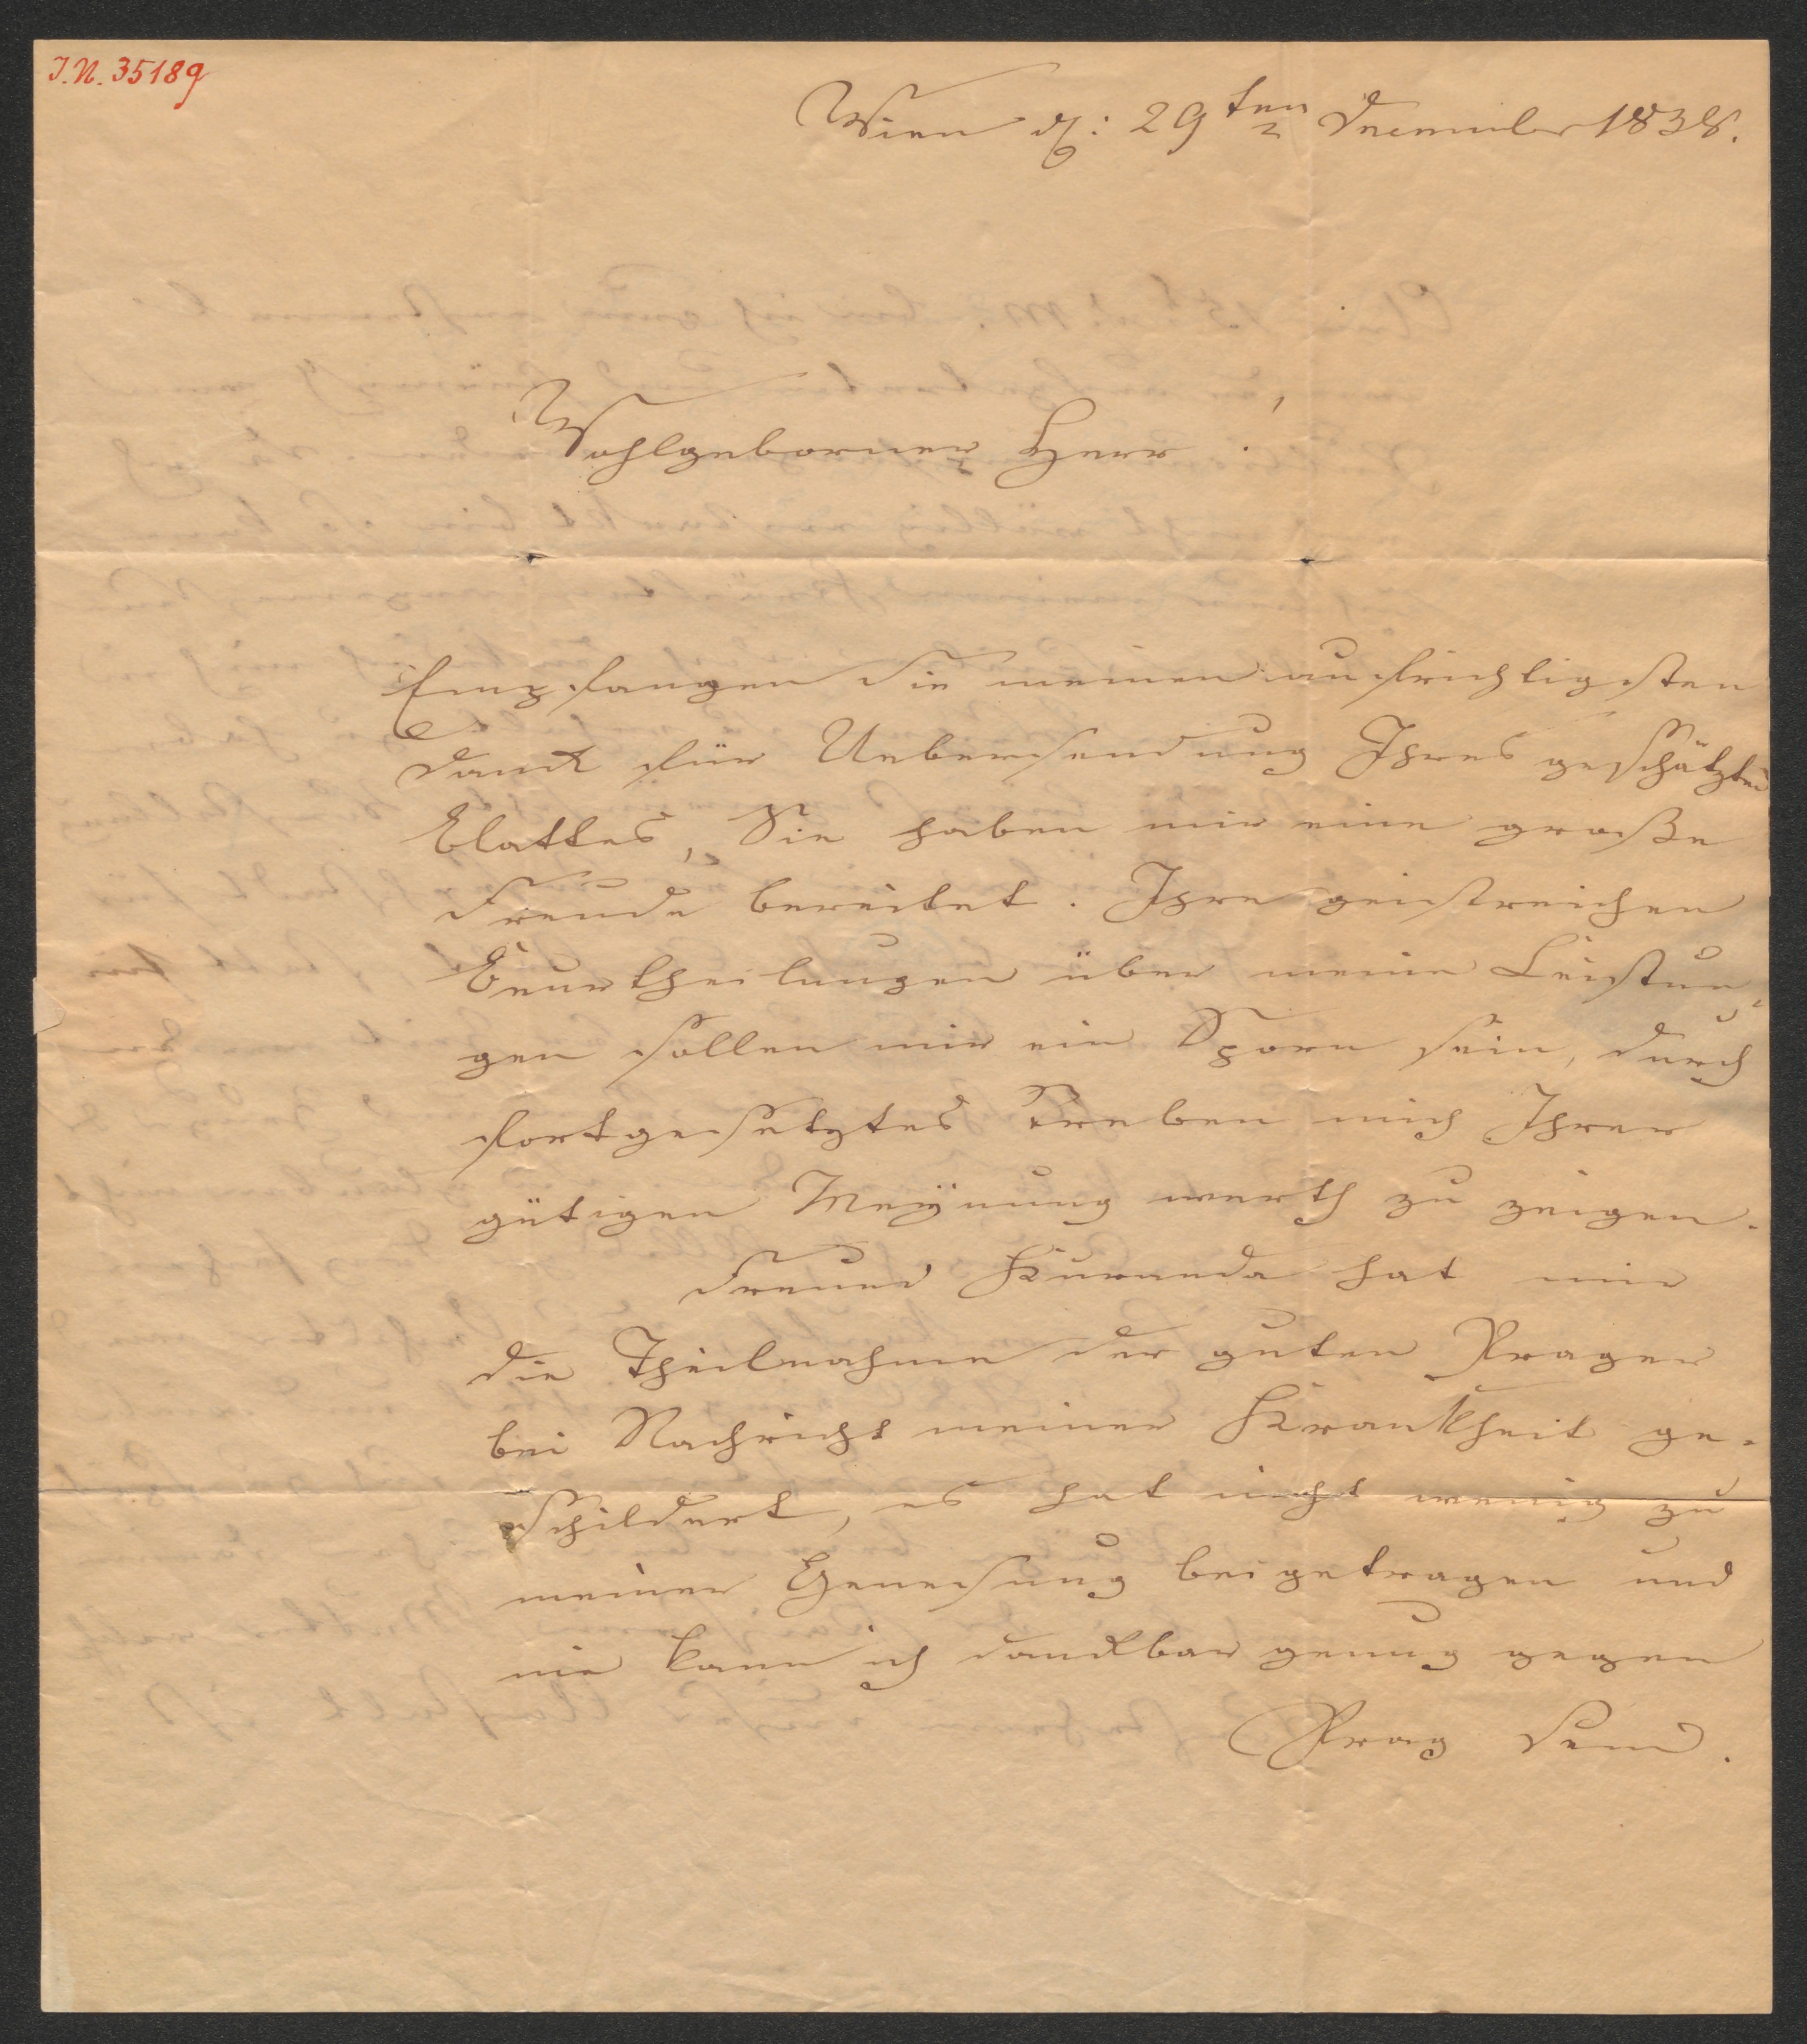 I.N. 35189
Wien d: 29ten Decemeber 1838.
Wohlgeborner Herr!
Empfangen Sie meinen aufrichtigsten
Dank für Uebersendung Ihres geschätzten
Blattes, Sie haben mir eine große
Freude bereitet. Ihre geistreichen
Beurtheilungen über meine Leistun-
gen sollen mir ein Sporn sein, durch
fortgesetztes Streben mich Ihrer
gütigen Meÿnung werth zu zeigen.
Freund Kuranda hat mir
die Theilnahme der guten Prager
bei Nachricht meiner Krankheit ge-
schildert, es hat nicht wenig zu
meiner Genesung beigetragen und
nie kann ich dankbar genug gegen
Prag sein.